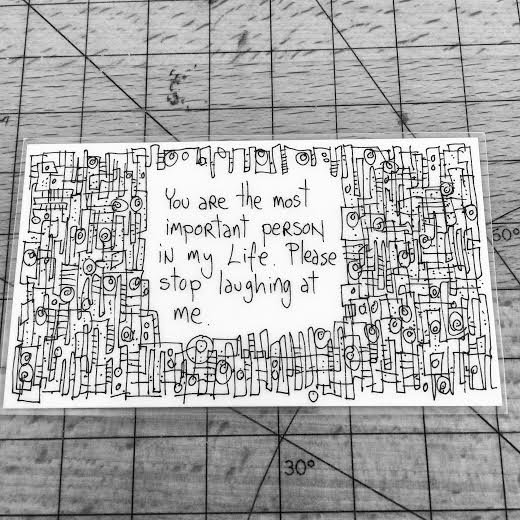 You are the most
important person
in my Life. Please
stop laughing at
me.
50°
30°